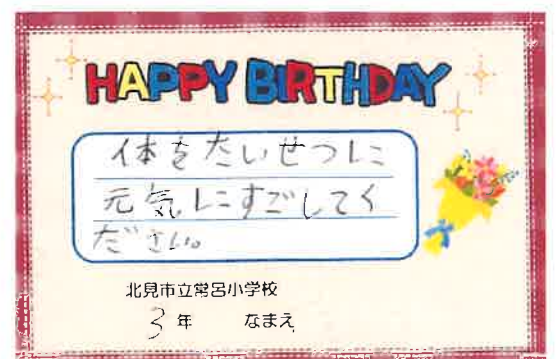 HAPPY BIRTHDAY
体をたいせつに
元気にすごしてく
ださい。
北見市立常呂小学校
3年 なまえ